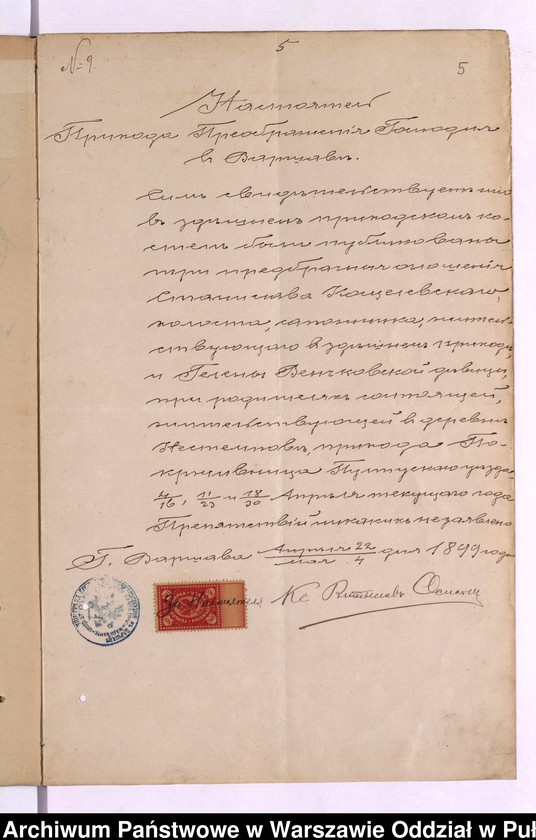 № 9.
5
5
Настоятель
Прихода Преображенія Господня
в Варшавѣ.
Симъ свидѣтельствуетъ что
въ здѣшнемъ приходскомъ ко-
стелѣ были публикованы
три предбрачныя оглашенія
Станислава Кощелевскаго,
холоста, сапожника, житель-
ствующаго в здѣшнемъ приходѣ,
и Гелены Венчковской дѣвицы,
при родителяхъ состоящей,
жительствующей в деревнѣ
прихода По-
кржывница Пултускаго уѣзда
4/16, 11/23 и 18/30 Апрѣля текущаго года
Препятствій никакихъ незаявлено
Г. Варшава Апрѣля 22/мая 4 дня 1899 года
За Настоятеля Кс
Archiwum Państwowe w Warszawie Oddział w Puł